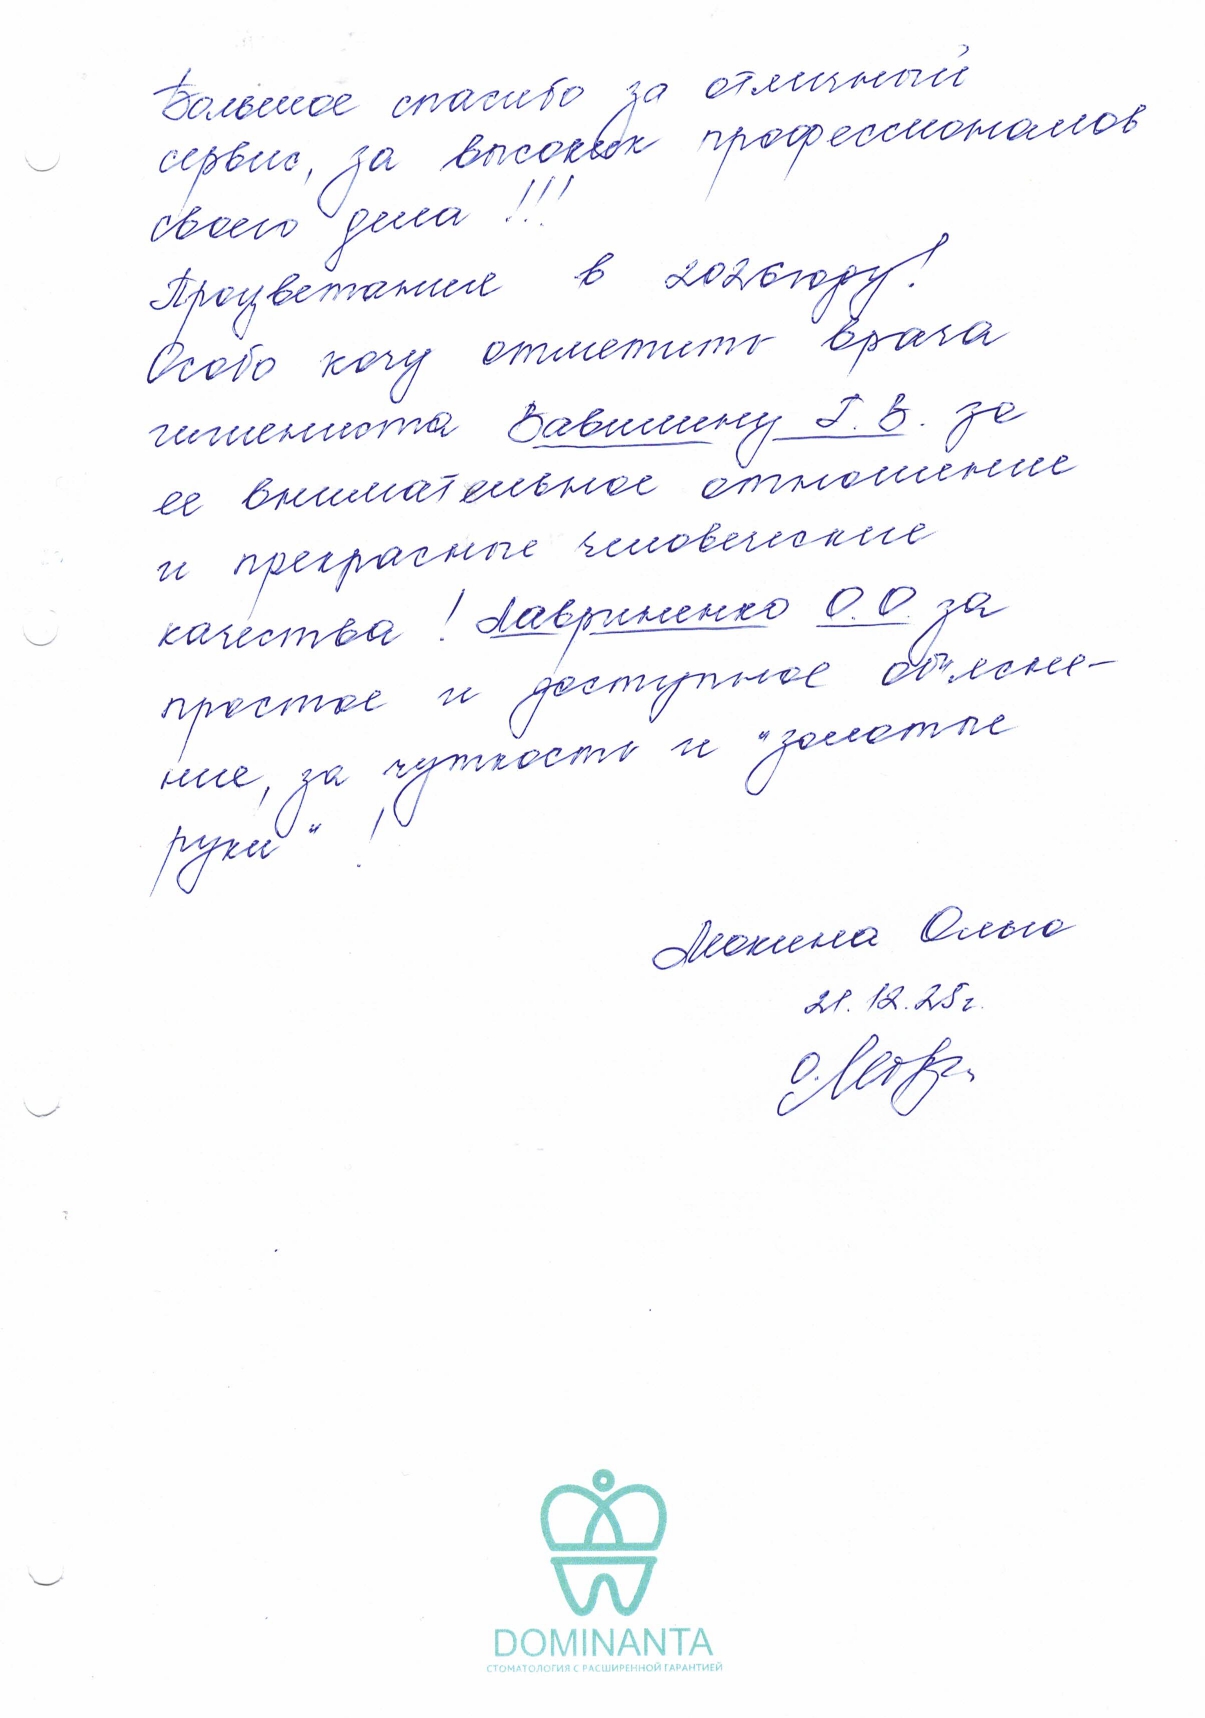 Большое спасибо за отличный
сервис, за высоких профессионалов
своего дела!!!
Процветания в 2026 году!
Особо хочу отметить врача
гигиениста Вавилину Г.В. за
ее внимательное отношение
и прекрасные человеческие
качества! Лавриненко О.О. за
простое и доступное объясне-
ние, за чуткость и "золотые
руки"!
Мокина Ольга
21.12.25г.
DOMINANTA
СТОМАТОЛОГИЯ С РАСШИРЕННОЙ ГАРАНТИЕЙ